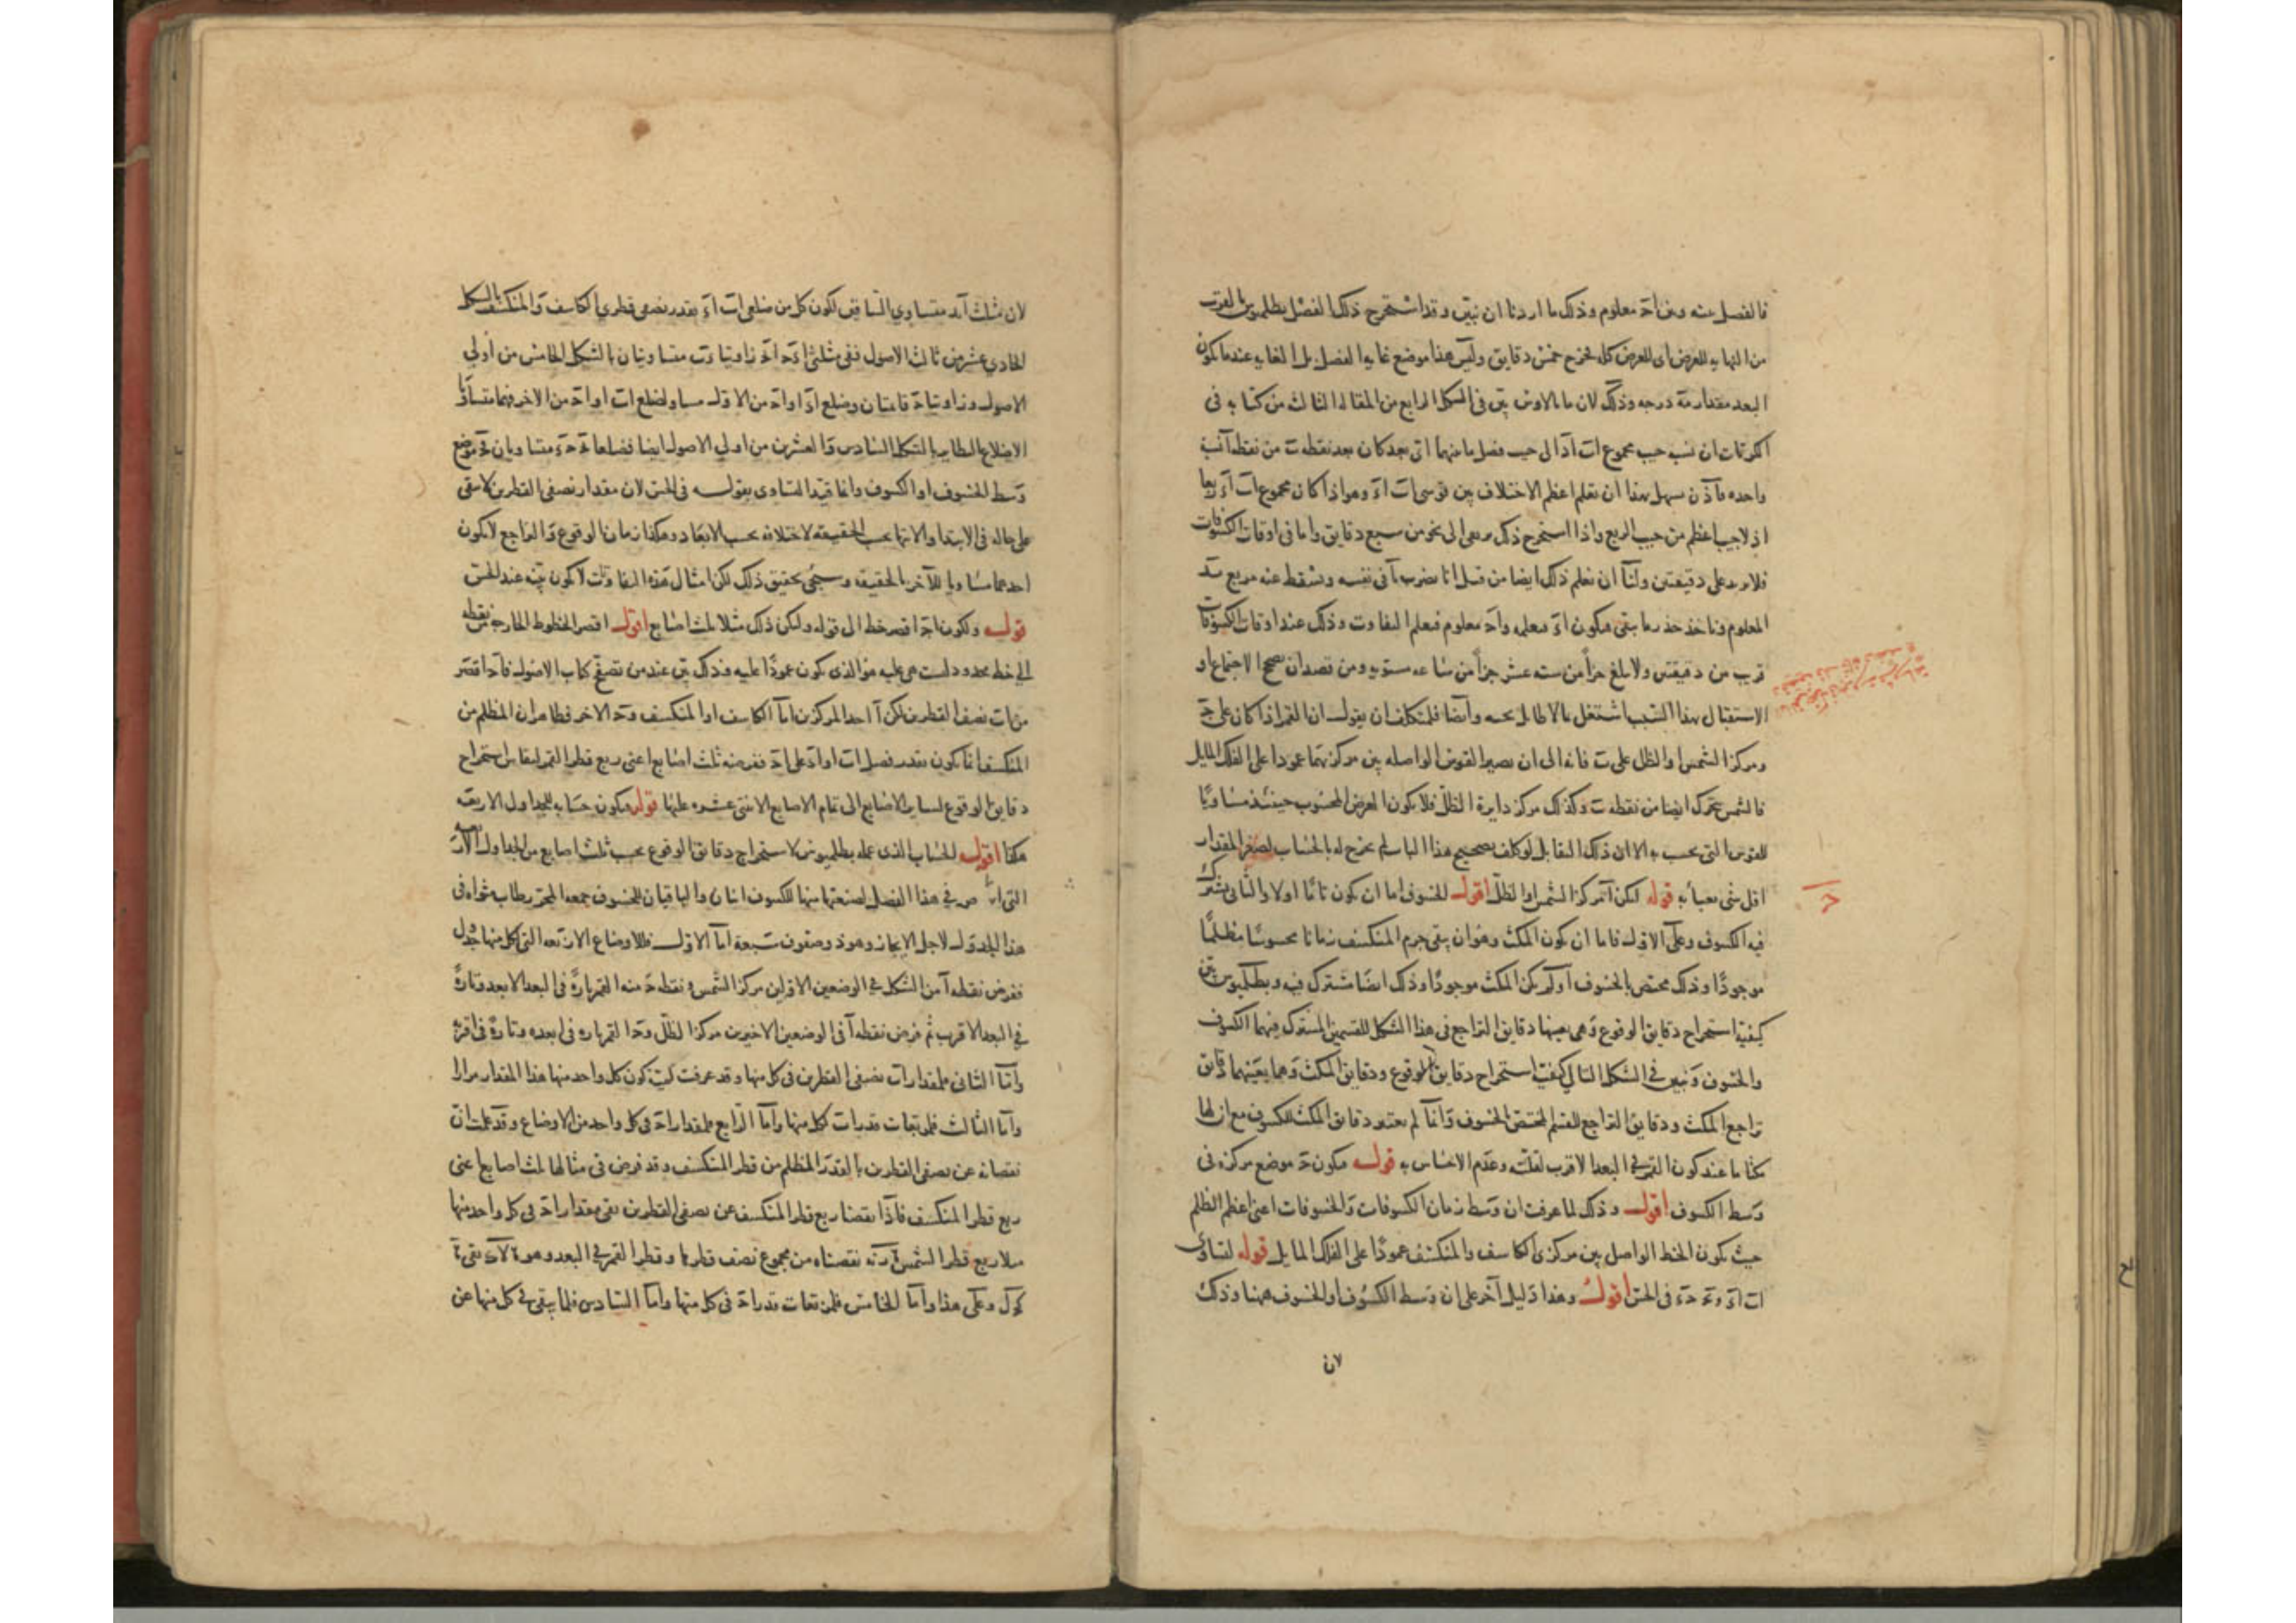 فالفصل بينه وبين اد معلوم وذلك ما اردنا ان نبين وقد استخرج ذلك الفضل بطلميوس بالقرب
من النهاية للعرض اى للعرض كله فخرج خمس دقايق وليس هذا موضع غاية الفضل بل الغاية عندما يكون
البعد مقدار مة درجه وذلك لان مالاوس بين فى الشكل الرابع من المقالة الثالث من كتابه فى
الكريات ان نسبة جيب مجموع اب اد الى جيب فضل ما بينهما اى بعد كان بعد نقطه ب من نقطه ا نسبة
واحده فاذن سهل بهذا ان نعلم اعظم الاختلاف بين قوسى اب اء وهو اذا كان مجموع اب اء ربعا
اذ لا جيب اعظم من جيب الربع واذا استخرج ذلك يرتقى الى نحو من سبع دقايق واما فى اوقات الكسوفات
فلا يزيد على دقيقتين ولنا ان نعلم ذلك ايضا من قبل انا نضرب ا فى نفسه ونسقط عنه مربع
المعلوم وناخذ جذر ما يبقى فيكون اء معلوم واد معلوم فيعلم التفاوت وذلك عند اوقات الكسوفات
قريب من دقيقتين ولا يبلغ جزأ من سته عشر جزأ من ساعه مستويه ومن قصد ان يصحح الاجتماع او
الاستقبال بهذا السبب اشتغل بما لا طايل تحته وايضا فلمتكلف ان يقول ان القمر اذا كان على ج
ومركز الشمس او الظل على ب فانه الى ان يصير القوس الواصله بين مركزيهما عمودا على الفلك المايل
فالشمس يتحرك ايضا من نقطه ب وكذلك مركز دايرة الظل فلا يكون العرض المحسوب حينئذ مساويا
للقوس التى يحسب به الا ان ذلك القايل لو كلف تصحيح هذا الباب لم يخرج له بالحساب لصغر المقدار
اقل شى يعبأ به قوله لكن ا مركز الشمس او الظل اقول الخسوف اما ان يكون تاما اولا والثانى يشترك
فيه الكسوف وعلى الاول فاما ان يكون المكث وهو ان يبقى جرم المنكسف زمانا محسوسا مظلما
موجودا وذلك مختص بالخسوف اولم يكن المكث موجودا وذلك ايضا مشترك فيه وبطلميوس بين
كيفية استخراج دقايق الوقوع وهى بعينها دقايق التراجع فى هذا الشكل للقسمين المشترك فيهما الكسوف
والخسوف ونبين فى الشكل التالى كيفية استخراج دقايق الوقوع ودقايق المكث وهما بعينهما دقايق
تراجع المكث ودقايق التراجع للقسم المختص بالخسوف وانما لم يعتبر دقايق المكث للكسوف مع ان لها
مكثا ما عند كون القمر فى البعد الاقرب لقلته وعدم الاحساس به قوله فيكون د موضع مركزه فى
وسط الكسوف اقول وذلك لما عرفت ان وسط زمان الكسوفات والخسوفات اعنى اعظم الظلم
حيث يكون الخط الواصل بين مركزى الكاسف والمنكسف عمودا على الفلك المايل قوله لتساوى
اب اء و د دء فى الحس اقول وهذا دليل آخر على ان وسط الكسوف او الخسوف ههنا وذلك
لان
لان مثلث ا ب ء متساوى الساقين لكون كل من ضلعى اب اء بقدر نصفى قطرى الكاسف والمنكسف بالشكل
الحادى عشر من ثالث الاصول ففى مثلثى اد زاويتا ء ب متساويتان بالشكل الخامس من اولى
الاصول وزاويتا د قائمتان وضلع اد او اد من الاول مساو لضلع اب او اد من الاخر فهما متساويا
الاضلاع النظاير بالشكل السادس والعشرين من اولى الاصول ايضا فضلعا د دء متساويان فد موضع
وسط الخسوف او الكسوف وانما قيد التساوى بقوله فى الحس لان مقدار نصفى القطرين لا يبقى
على حاله فى الابتدا والانتها بحسب الحقيقه لاختلافه بحسب الابعاد وهكذا زمانا الوقوع والتراجع لا يكون
احدهما مساويا للآخر بالحقيقه وسيجى تحقيق ذلك لكن امثال هذه التفاوتات لا يكون بينة عند الحس
قوله ولكون اد اقصر خط الى قوله وليكن ذلك مثلا ثلث اصابع اقول اقصر الخطوط الخارجه من نقطه
الى خط محدود ليست هى عليه هو الذى يكون عمودا عليه وذلك بين عند من تصفح كتاب الاصول فاد اقصر
من اب نصف القطرين لكن ا احد المركزين اما الكاسف او المنكسف ود الاخر فظاهر ان المظلم من
المنكسف انما يكون بقدر فضل اب او اء على اد ففرضه ثلث اصابع اعنى ربع قطر القمر ليقاس استخراج
دقايق الوقوع لساير الاصابع الى تمام الاصابع الاثنى عشره عليها قوله فيكون حسابه للجداول الاربعه
هكذا اقول الحساب الذى عمله بطلميوس لاستخراج دقايق الوقوع بحسب ثلث اصابع من الجداول الاربعه
التى فى هذا الفصل لصنعتها منها للكسوف اثنان والباقيان للخسوف جمعه المحرر طاب ثراه فى
هذا الجدول لاجل الايجاز وهو ذو صفوف سبعة اما الاول فللاوضاع الاربعه التى كل منها جدول
ففرض نقطه ا من الشكل فى الوضعين الاولين مركز الشمس ونقطه د منه القمر تارة فى البعد الابعد وتارة
فى البعد الاقرب ثم فرض نقطه ا فى الوضعين الاخيرين مركز الظل ود القمر تارة فى ابعده وتارة فى اقربه
واما الثانى فلمقدار اب نصفى القطرين فى كل منها وقد عرفت كيف يكون كل واحد منها هذا المقدار مرارا
واما الثالث فلمربعات مقدار اب كل منها واما الرابع فلمقدار اد فى كل واحد من الاوضاع وقد علمت ان
نقصانه عن نصفى القطرين بالقدر المظلم من قطر المنكسف وقد فرض فى مثالها ثلث اصابع اعنى
ربع قطر المنكسف فاذا نقصنا ربع قطر المنكسف عن نصفى القطرين بقى مقدار اد فى كل واحد منها
مثلا ربع قطر الشمس نقصناه من مجموع نصف قطرها وقطر القمر فى البعد وهو بقى
وعلى هذا واما الخامس فلمربعات مقدار اد فى كل منها واما السادس فلما يبقى فى كل منها عن